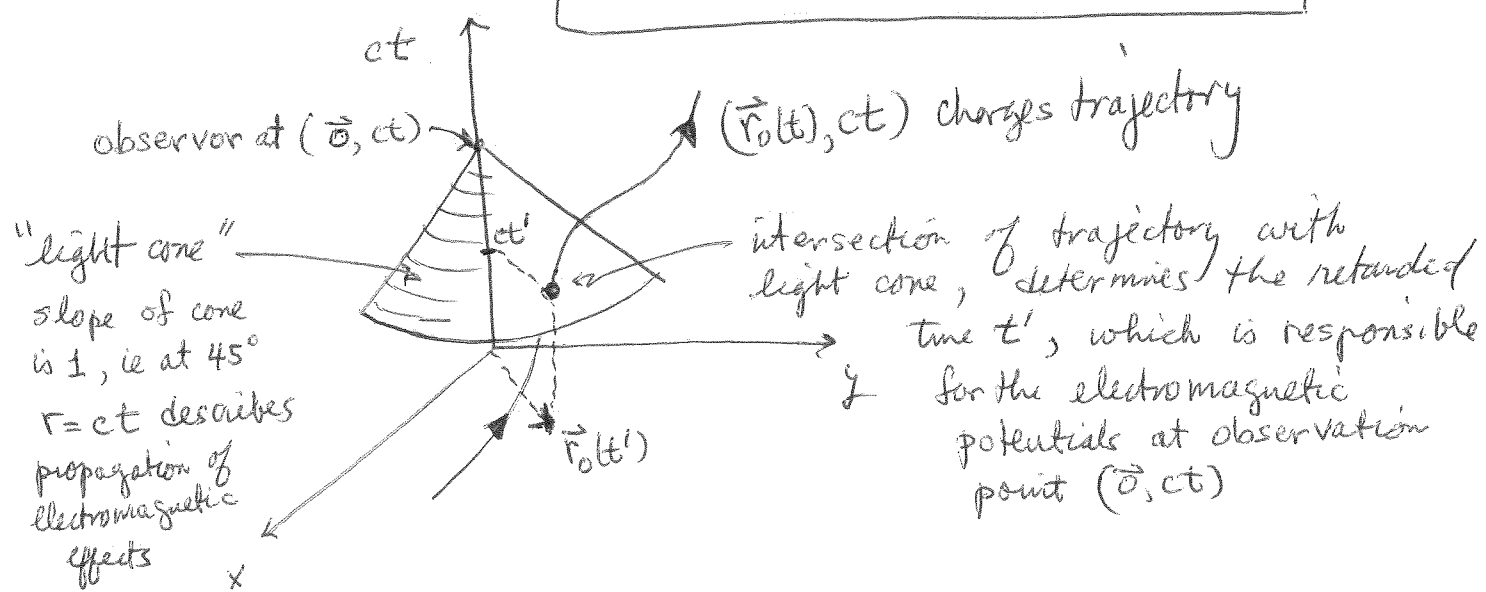 ct
observor at (0⃗, ct)
(r⃗₀(t), ct) charges trajectory
"light cone"
slope of cone
is 1, ie at 45°
r = ct describes
propagation of
electromagnetic
effects
ct'
intersection of trajectory with
light cone, determines the retarded
time t', which is responsible
for the electromagnetic
potentials at observation
point (0⃗, ct)
y
r⃗₀(t')
x